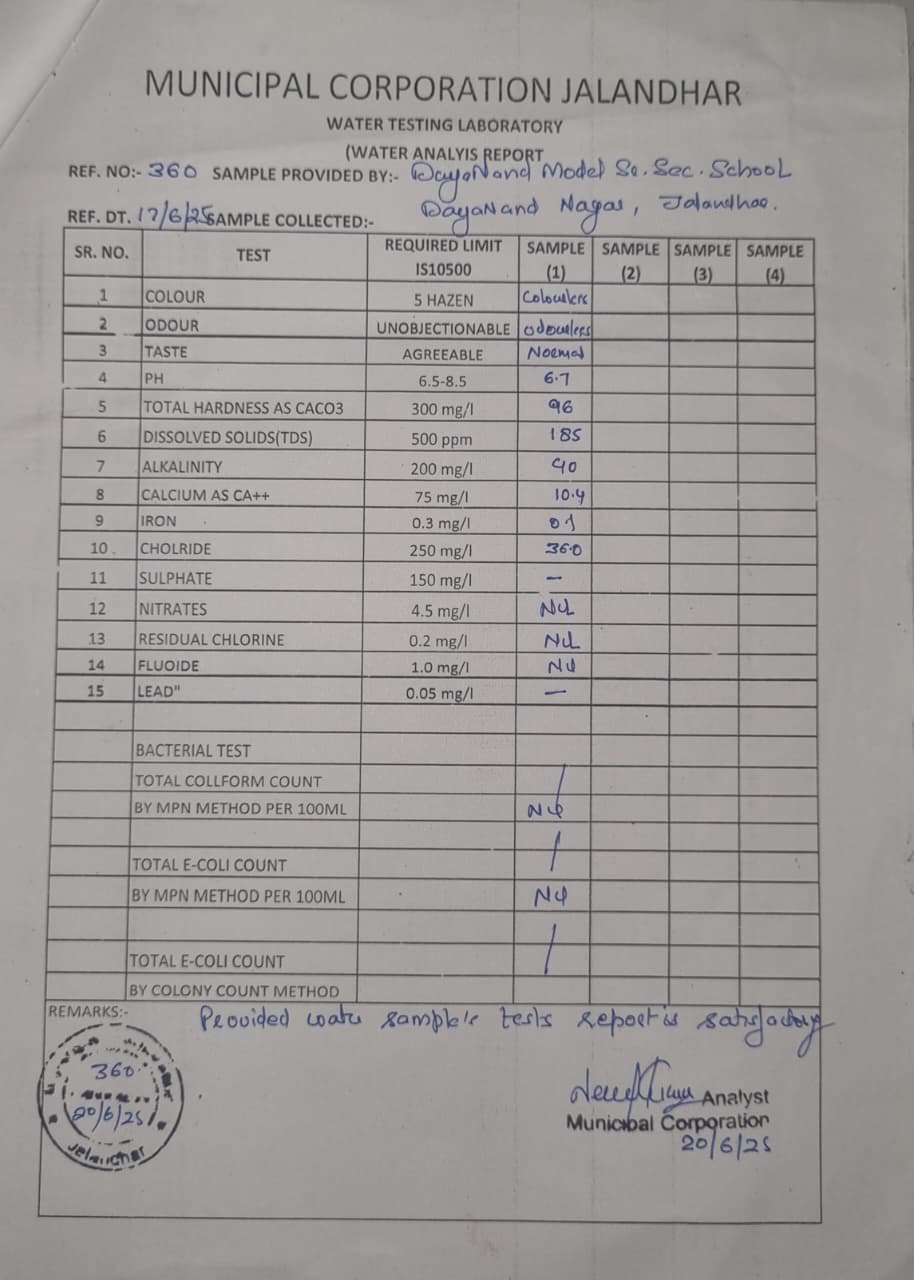 MUNICIPAL CORPORATION JALANDHAR
WATER TESTING LABORATORY
(WATER ANALYIS REPORT
REF. NO:- 360 SAMPLE PROVIDED BY:- DayaNand Model Se. Sec. School
REF. DT. 17/6/25 SAMPLE COLLECTED:- DayaNand Nagar, Jalandhar.
SR. NO. TEST REQUIRED LIMIT IS10500 SAMPLE (1) SAMPLE (2) SAMPLE (3) SAMPLE (4)
1 COLOUR 5 HAZEN Colourlers
2 ODOUR UNOBJECTIONABLE odourlers
3 TASTE AGREEABLE Normal
4 PH 6.5-8.5 6.7
5 TOTAL HARDNESS AS CACO3 300 mg/l 96
6 DISSOLVED SOLIDS(TDS) 500 ppm 185
7 ALKALINITY 200 mg/l
8 CALCIUM AS CA++ 75 mg/l 10.4
9 IRON 0.3 mg/l
10 CHOLRIDE 250 mg/l 36.0
11 SULPHATE 150 mg/l —
12 NITRATES 4.5 mg/l Nil
13 RESIDUAL CHLORINE 0.2 mg/l Nil
14 FLUOIDE 1.0 mg/l Nil
15 LEAD" 0.05 mg/l —
BACTERIAL TEST
TOTAL COLLFORM COUNT /
BY MPN METHOD PER 100ML Nil
/
TOTAL E-COLI COUNT
BY MPN METHOD PER 100ML Nil
/
TOTAL E-COLI COUNT
BY COLONY COUNT METHOD
REMARKS:- Provided water sample's tests report is satisfactory
360
20/6/25
Jalandhar
Analyst
Municipal Corporation
20/6/25